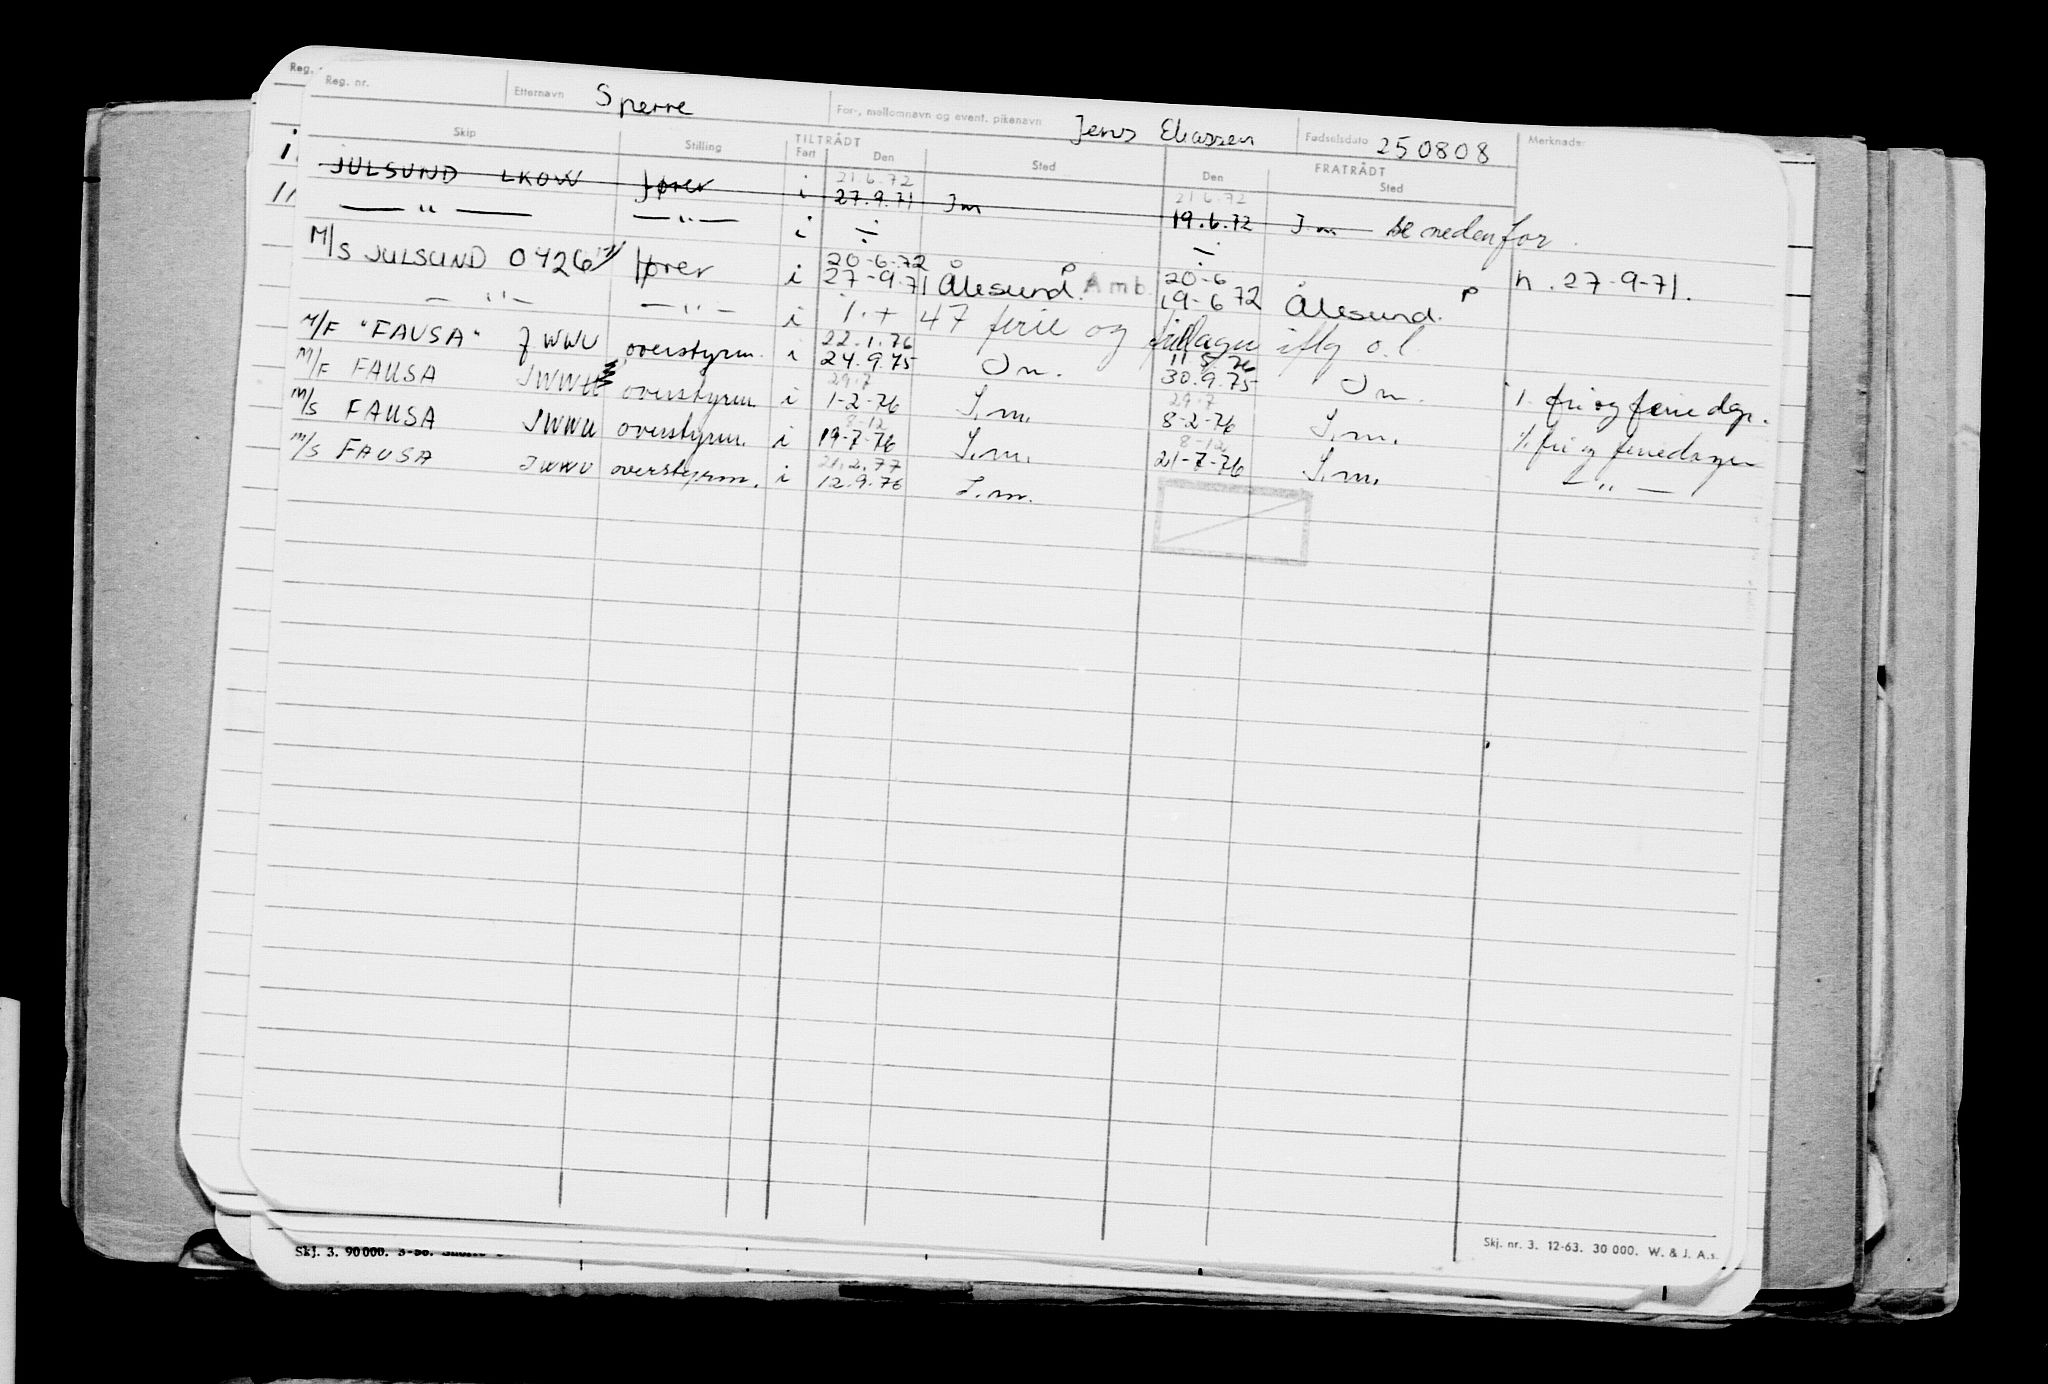 Reg.
Reg. nr. Etternavn Sperre For-, mellomnavn og event. pikenavn Jens Eliassen Fødselsdato 250808 Merknader
Skip Stilling TILTRÅDT Fart Den Sted FRATRÅDT Den Sted
21.6.72 21.6.72
JULSUND LKOW fører i 27.9.71 Im 19.6.72 I.m Se nedenfor.
— " — — " — i ÷ ÷
20-6-72 20-6
M/S JULSUND 0426 fører i 27-9.71 Ålesund. P Amb. 19-6 72 Ålesund. P n. 27-9-71.
— " — — " — i 1. + 47 ferie og fridager iflg o.l.
22.1.76
M/F "FAUSA" JWWU overstyrm. i 24.9.75 Im. 30.9.75 Im. ÷ fri og feriedgr.
29.7 29.7
M/F FAUSA JWWU overstyrm i 1-2-76 I.m. 8-2-76 I.m. ÷ fri og feriedager
8-12 8-12
M/S FAUSA JWWU overstyrm. i 19-7-76 I.m. 21-7-76 I.m. — " —
21.2.77
M/S FAUSA JWWU overstyrm. i 12.9.76 I.m.
Skj. 3. 90000. 3-56.
Skj. nr. 3. 12-63. 30 000. W. & J. A.s.